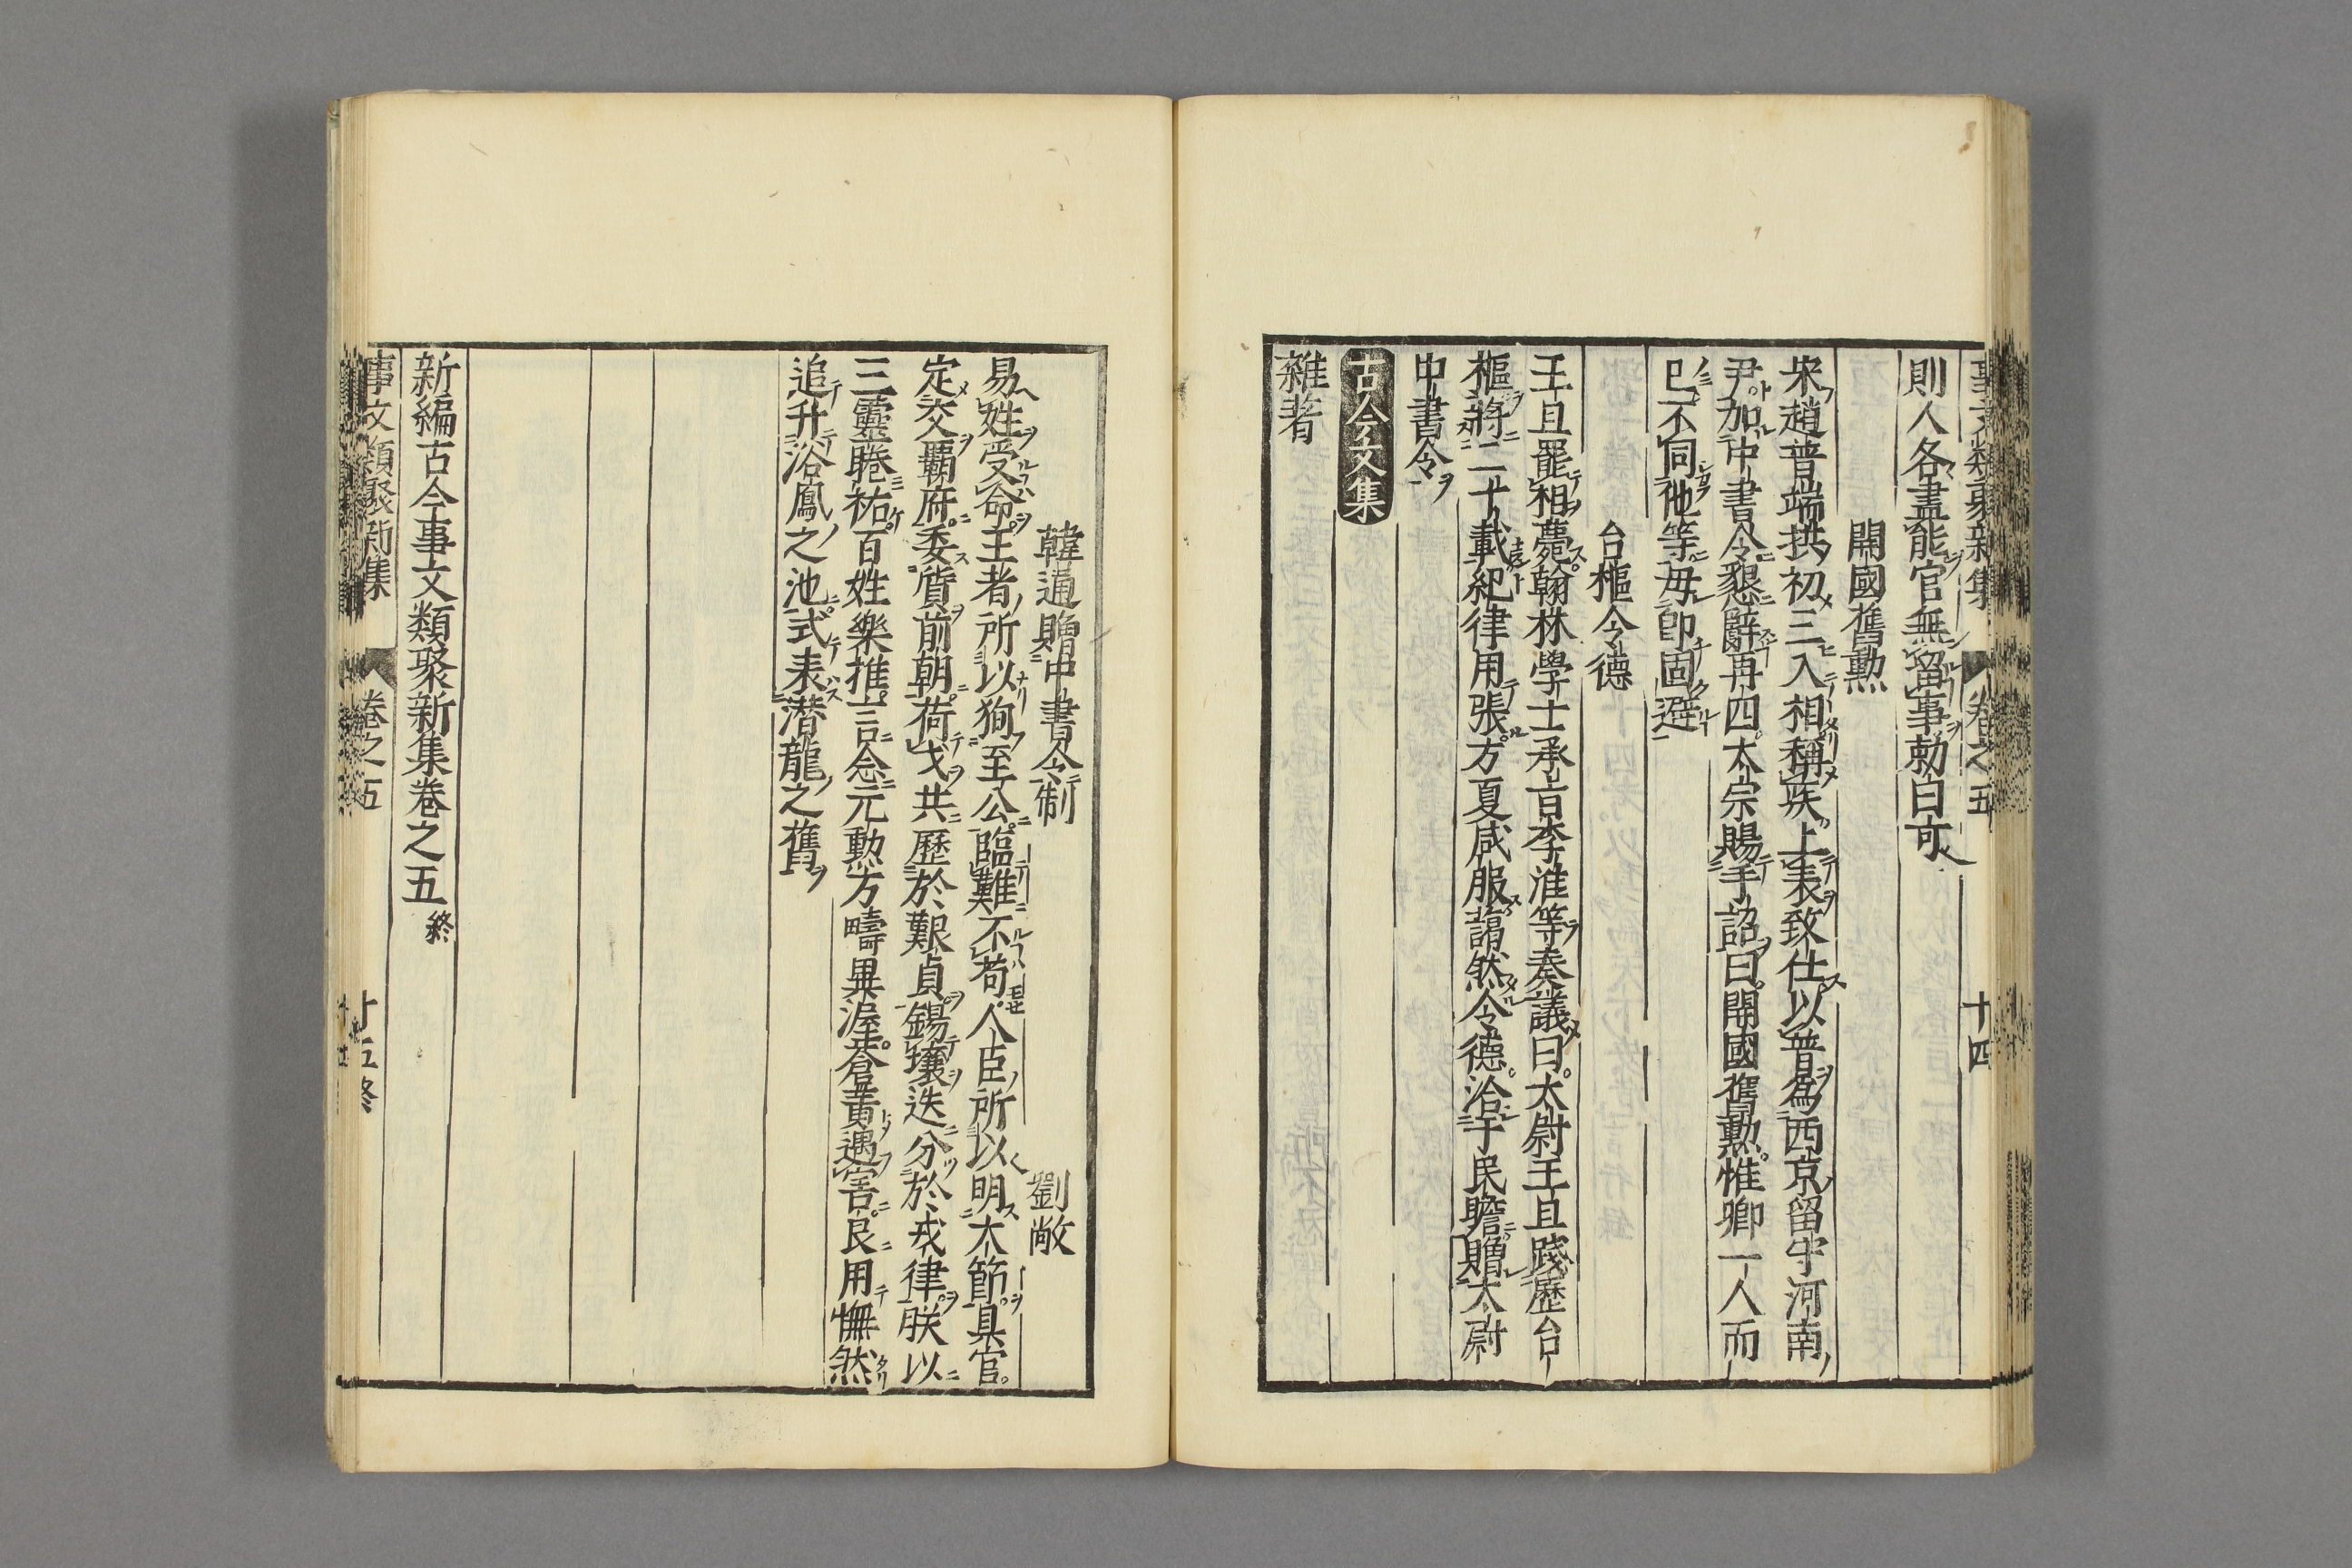 事文類聚新集 卷之五 十四
則人各盡能官無留事勅曰可
開國舊勲
宋趙普端拱初三入相稱疾上表致仕以普爲西京留守河南
尹加中書令懇辭再四太宗賜手詔曰開國舊勲惟卿一人而
巳不同他等毋卽固避
台樞令德
王旦罷相薨翰林學士承旨李淮等奏議曰太尉王旦踐歷台
樞將二十載紀律用張方夏咸服謂然令德洽于民瞻贈太尉
中書令
古今文集
雜著
韓通贈中書令制 劉敞
易姓受命王者所以狥至公臨難不苟人臣所以明大節具官
定交覇府委質前朝荷戈共歷於艱貞錫壤迭分於戎律朕以
三靈睠祐百姓樂推言念元勲方疇異渥蒼黃遇害良用憮然
追升浴鳳之池式表潜龍之舊
新編古今事文類聚新集卷之五 終
事文類聚新集 卷之五 十五終